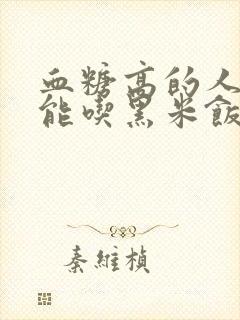 血糖高的人
能喫黑米飯
秦維楨